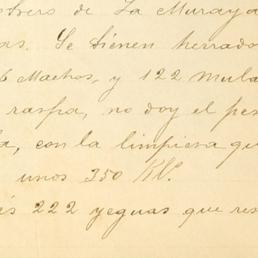 otrero de La Muraya
as. Se tienen herrado
6 Machos, y 122 Mula
raspa, no doy el pes
la, con la limpieza qu
unos 350 Kl.
es 222 yeguas que res